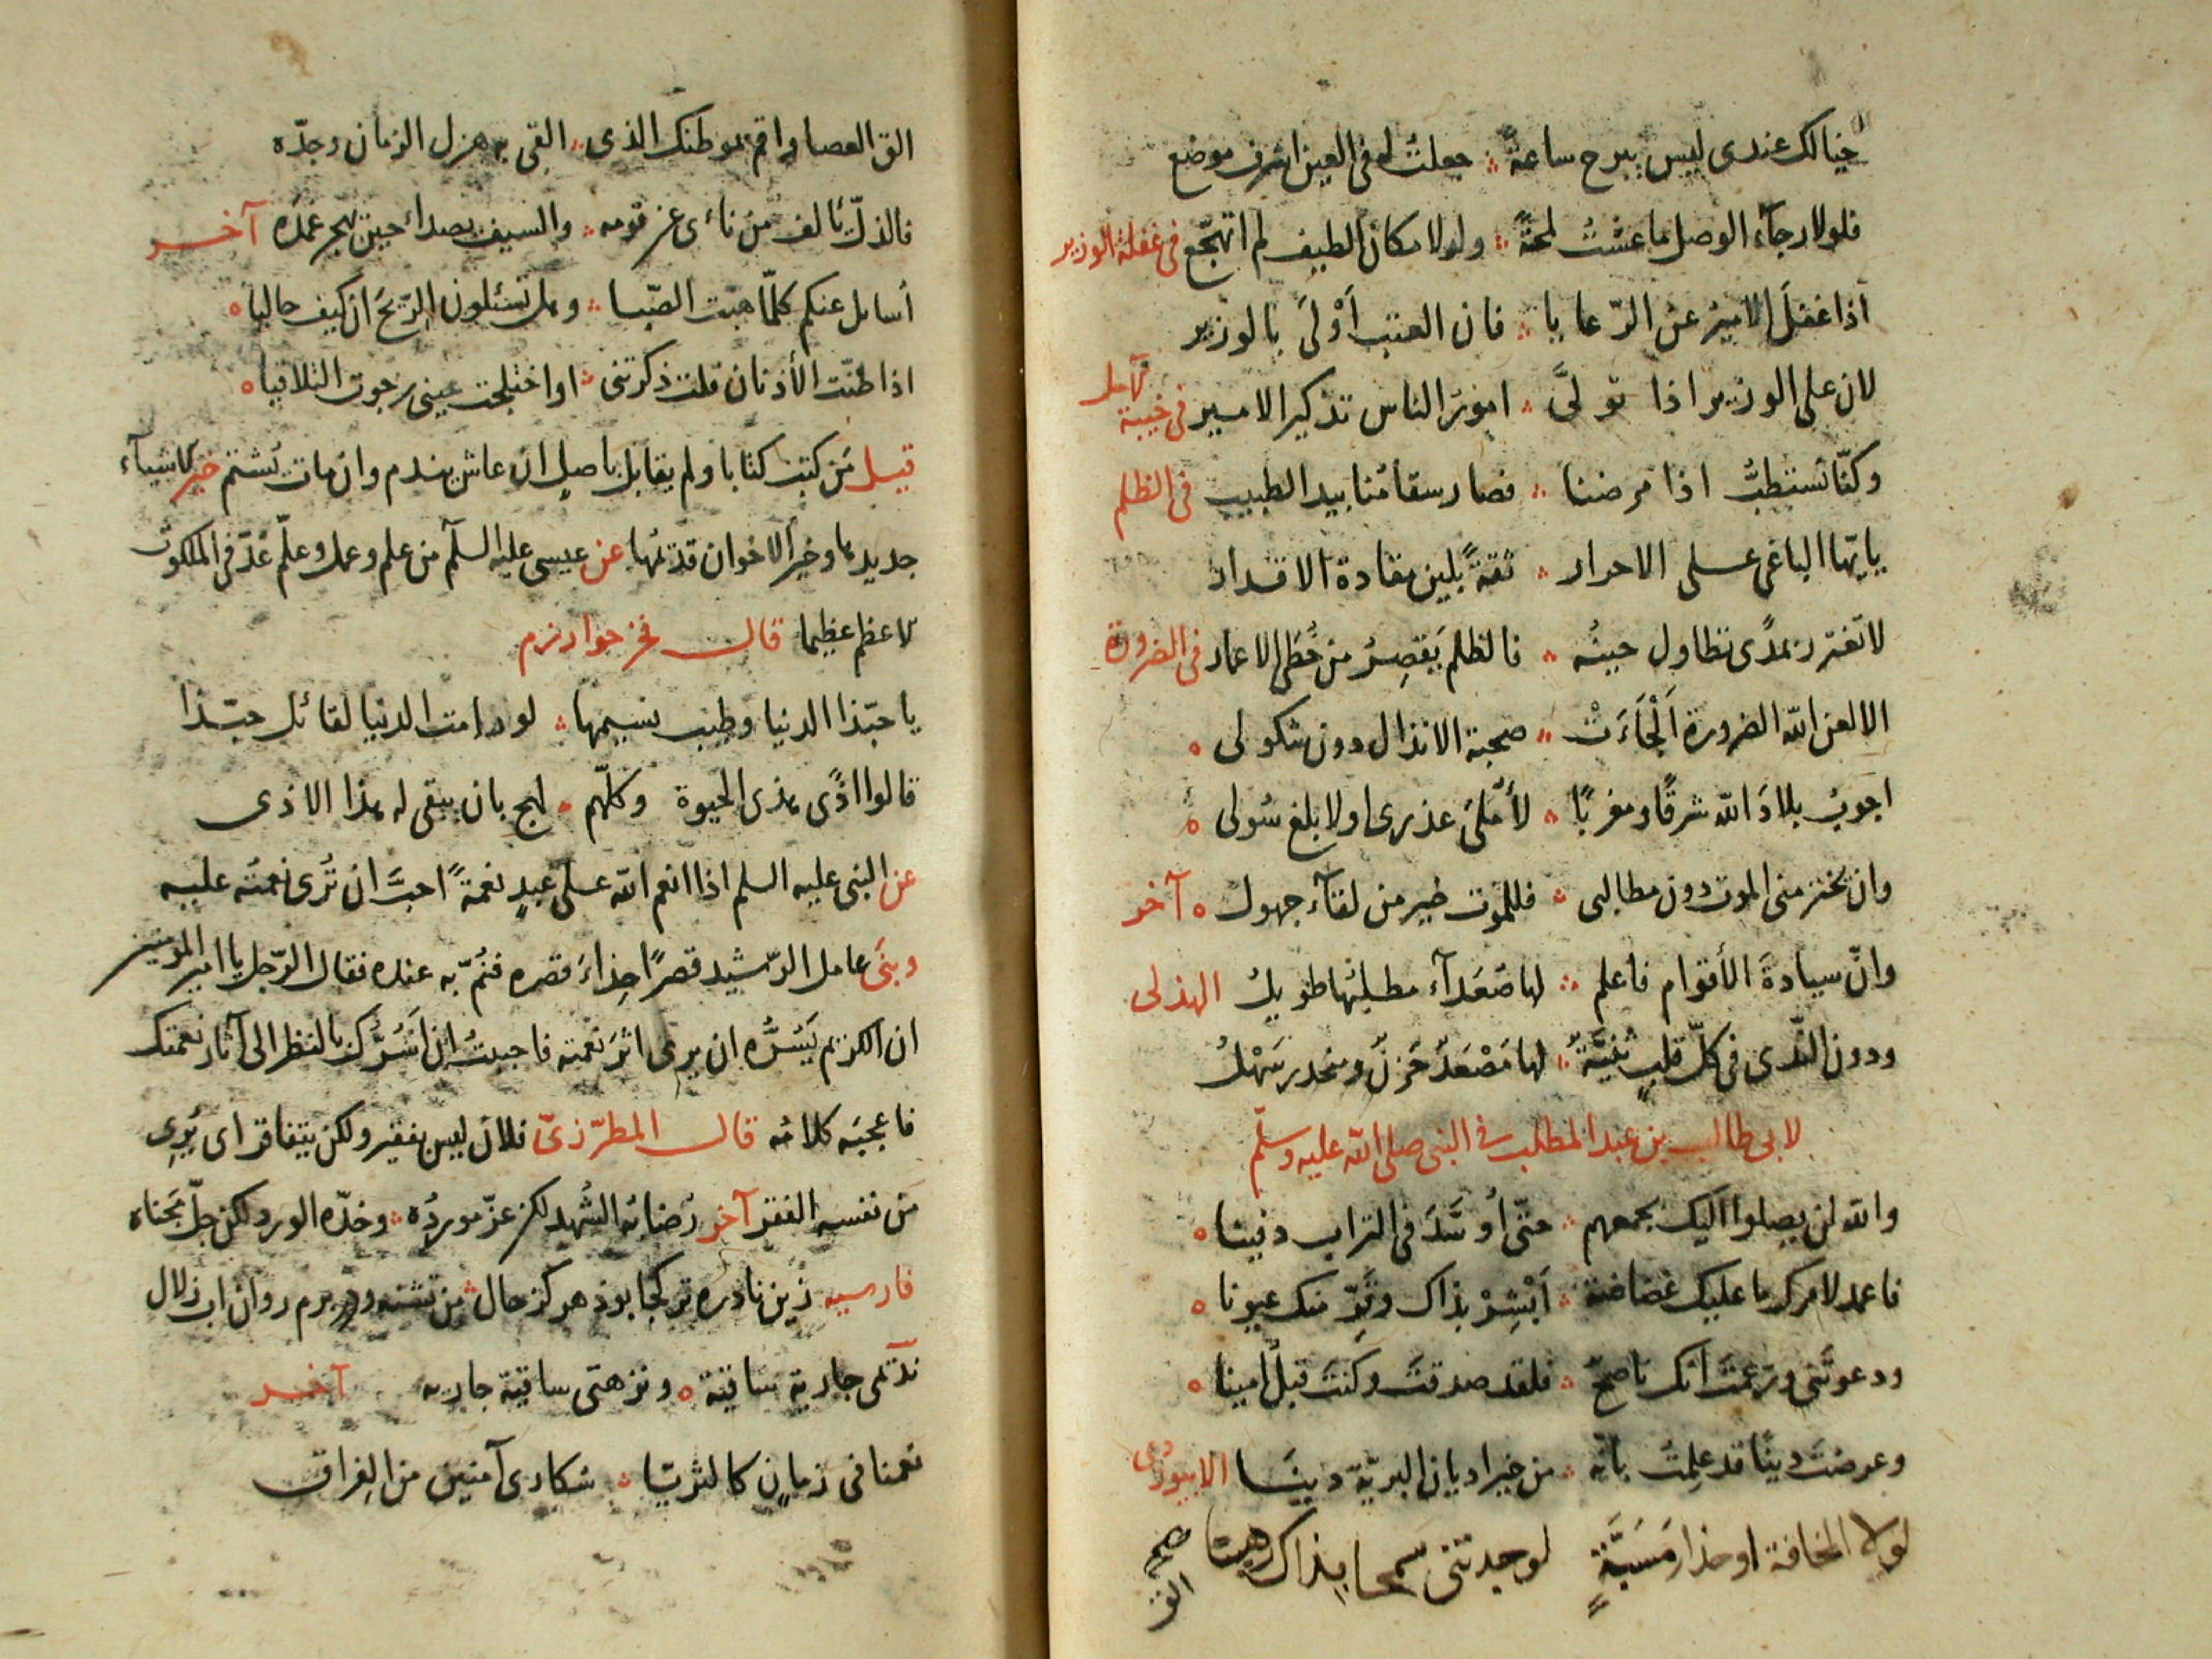 خيالك عندى ليس يبرح ساعة ؞ جعلت له فى العين اشرف موضع
فلولا رجآء الوصل ما عشت لمحةً ؞ ولولا مكان الطيف لم اتهجّع فى غفلة الوزير
اذا غفلَ الامير عن الرّعايا ؞ فان العتب اَوْلىَ بالوزير
لان على الوزير اذا تولىَّ ؞ امورَ الناس تذكير الامير فى خيبة آمل
وكنّا نستطبُّ اذا مرضنا ؞ فصار سقامُنا بيد الطبيب فى الظلم
يايّها الباغى على الاحرار ؞ ثقةً بلين مقادة الاقدار
لا تغترر بمدًى تطاول حينُه ؞ فالظلم يَقصِرُ من خُطَى الاعمار فى الضرورة
الا لعن الله الضرورة اَلْجَاءَتْ ؞ صحبة الانذال دون شكولى ه
اجوبُ بلادَ الله شرقًا ومغربًا ؞ لأملىَ عذرى او لابلغ سُولى ه
وان تخترمنى الموت دون مطالبى ؞ فللموت خير من لقآء جهول ه آخر
وانّ سيادةَ الأقوام فاعلم ؞ لها صَعَدآء مطلبُها طويلُ الهذلى
ودون النّدى فى كلّ قلبٍ ثنيَّةٌ ؞ لها مَصْعَدٌ حَزنٌ ومنحدر سَهْلُ
لابى طالب بن عبد المطلب فى النبى صلى الله عليه وسلّم
والله لن يصلوا اليك بجمعهم ؞ حتّى أُوَسَّدَ فى التراب دفينا ه
فاعمد لامرك ما عليك غضاضة ؞ اَبْشِرْ بذاك وقَرّ منك عيونا ه
ودعوتَنى وزعمتَ انّك ناصحٌ ؞ فلقد صدقتَ وكنتَ قبلُ امينا ه
وعرضتَ دينًا قد علِمتُ بانّه ؞ من خير اديان البريّة دينًا الابيوردى
لولا المخافة او حذار مَسَبَّةٍ لوجدتنى سمحا بذاك رهينا صح
الق
الق العصا واقم بموطنك الذى ؞ القى به هزل الزمان وجدّه
فالذلّ يالف من ناءى عن قومه ؞ والسيف يصداء حين يهجر غمده آخر
أسايل عنكم كلّما هبّت الصّبا ؞ وهل تسئلون الرّيحَ ان كيف حاليا ه
اذا طنّت الأذنان قلت ذكرتنى ؞ او اختلجت عينى رجوت التلاقيا ه
قيل مَن كتب كتابا ولم يقابل باصلٍ ان عاش يندم وان مات يُشتم خير الاشيآء
جديدها وخير الاخوان قديمُها عن عيسى عليه السلٓم من علم وعمل وعلّم عُدّ فى الملكوت
لاعظم عظيما قال فخر خوارزم
يا حبّذا الدنيا وطيب نسيمها ؞ لو دامت الدنيا لقائل حبّذا
قالوا اذًى هذى الحيوة وكلّهم ؞ لهج بان يبقى له هذا الاذى
عن النبى عليه السلم اذا انعم الله على عبدٍ نعمةً احبَّ ان تُرى نعمتُه عليه
وبنىَ عامل الرّشيد قصرًا حِذاءَ قصره فنُمّ به عنده فقال الرّجل يا امير المومنين
ان الكريم يَسُرُّه ان يرى اثرَ نعمته فاحببتُ ان اَسُرَّك بالنظر الى آثار نعمتك
فاعجبَه كلامُه قال المطرّزىّ فلان ليس بفقير ولكن يتفاقر اى يُرِى
من نفسه الفقر آخر رُضابُه الشُهد لكن عزّ موردُه ؞ وخدّه الورد لكن جلّ مَجناه
فارسيه زين نادره تر كجا بود هركز حال ؞ من تشنه وپيشم روان اب زلال
ندٓتمى جارية ساقية ه ونزهتى ساقية جاريه آخر
نعمنا فى زمانٍ كالثريّا ؞ سكارى آمنين من الفراق